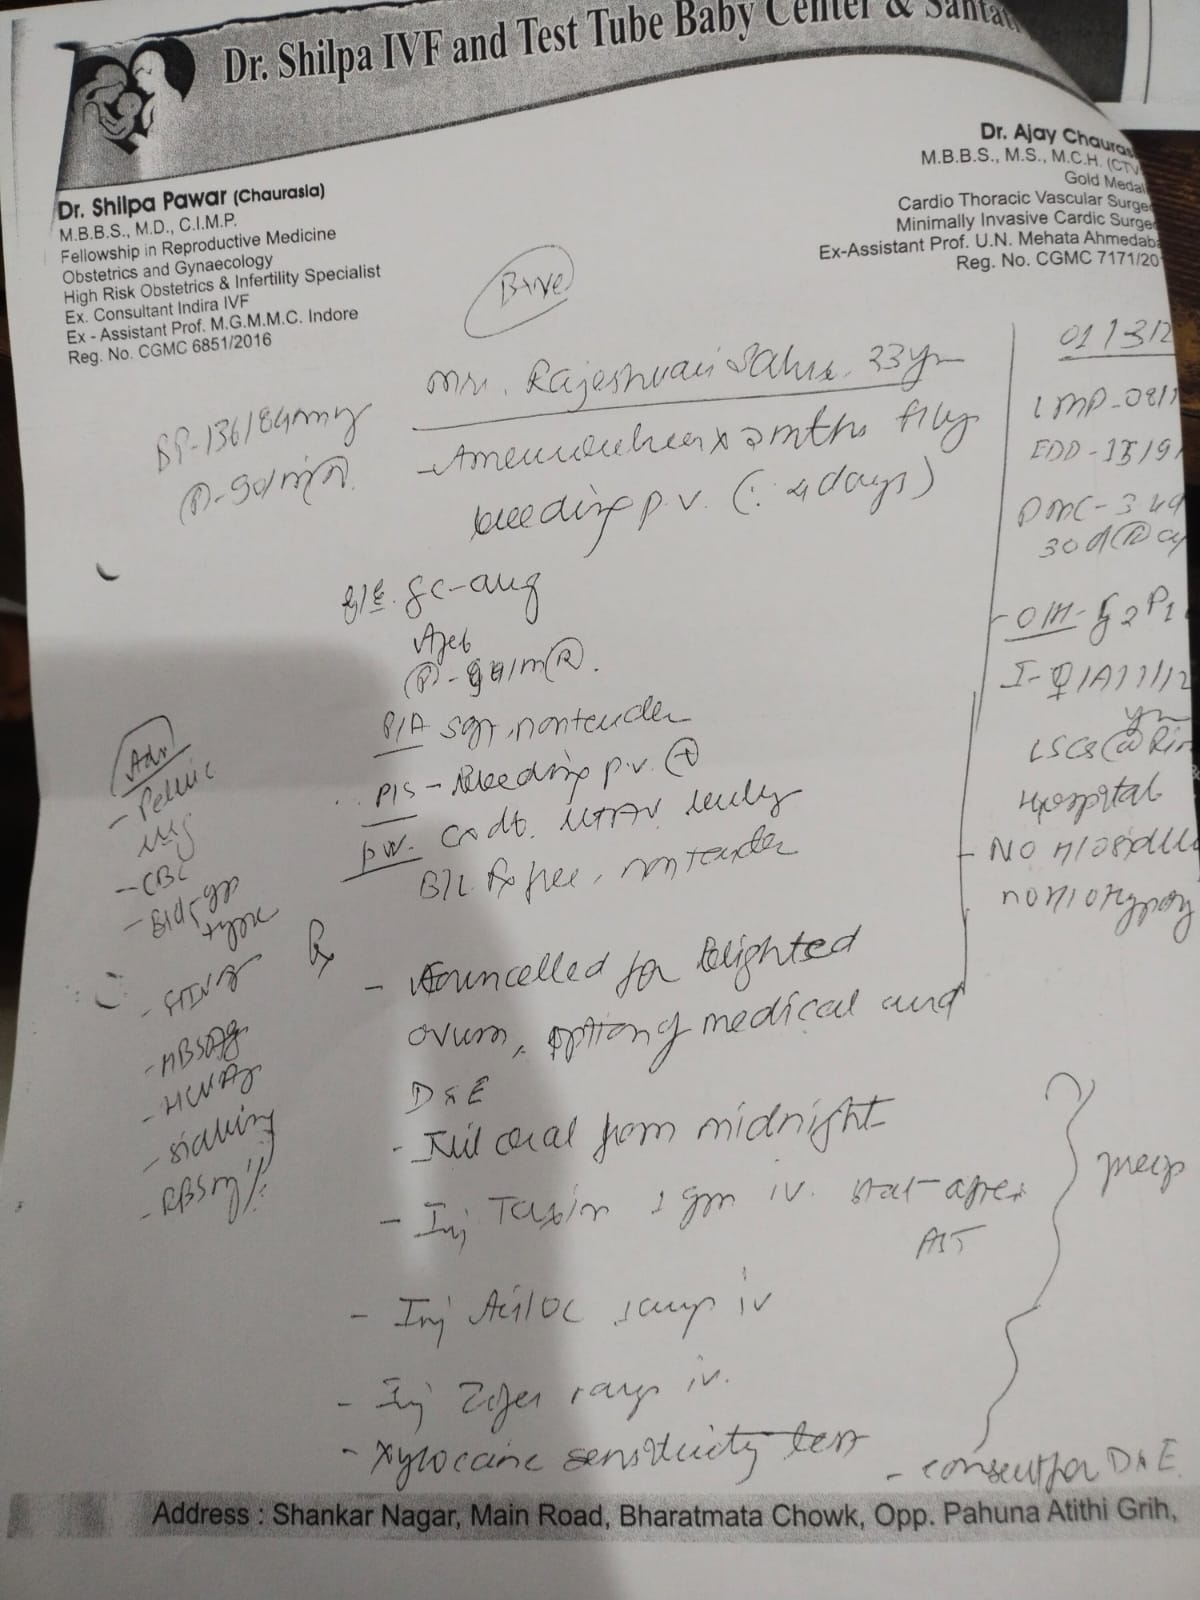 Dr. Shilpa IVF and Test Tube Baby Center & Santa
Dr. Shilpa Pawar (Chaurasia)
M.B.B.S., M.D., C.I.M.P.
Fellowship in Reproductive Medicine
Obstetrics and Gynaecology
High Risk Obstetrics & Infertility Specialist
Ex. Consultant Indira IVF
Ex - Assistant Prof. M.G.M.M.C. Indore
Reg. No. CGMC 6851/2016
Dr. Ajay Chauras
M.B.B.S., M.S., M.C.H. (CTV
Gold Medal
Cardio Thoracic Vascular Surge
Minimally Invasive Cardic Surge
Ex-Assistant Prof. U.N. Mehata Ahmedaba
Reg. No. CGMC 7171/20
B+ve
Mrs. Rajeshwari Sahu. 33yr
BP-136/84mmHg
(P)-90/m(R).
- Amenorrhoea x 2 mths f/by
bleeding p.v. (: 4 days)
O/E. GC-avg
Afeb
(P)- 90/m(R).
P/A soft, nontender
P/S - Bleeding p.v. (+)
PV.
B/L Fx free, nontender
01/3/2
LMP-08/1
EDD-15/9/
PMC-3-4d
30d(R) cy
- O/H- G2P1
I- ♀/A/11/12
yr
LSCS @
Hospital
- NO H/O
no H/O
Adv
- Pelvic
USG
- CBC
- Bld gp
type
- HIV
- HBSAg
- HCVAg
- Sickling
- RBS
Rx
- Councelled for Blighted
ovum, option of medical and
D & E
- Nil oral from midnight
- Inj Taxim 1 gm iv. stat-after
AST
- Inj Aciloc 1amp iv
- Inj Zofer 1amp iv.
- Xylocaine sensitivity test
- consent for D & E.
Address : Shankar Nagar, Main Road, Bharatmata Chowk, Opp. Pahuna Atithi Grih,